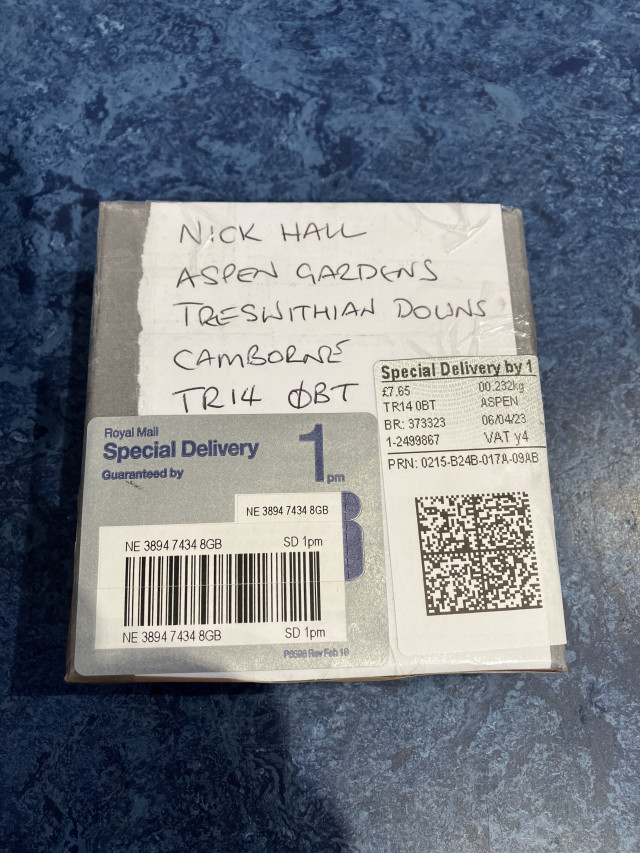 NICK HALL
ASPEN GARDENS
TRESWITHIAN DOWNS
CAMBORNE
TR14 0BT
Special Delivery by 1
£7.65 00.232kg
TR14 0BT ASPEN
BR: 373323 06/04/23
1-2499867 VAT y4
PRN: 0215-B24B-017A-09AB
Royal Mail
Special Delivery
Guaranteed by
1pm
NE 3894 7434 8GB
NE 3894 7434 8GB SD 1pm
NE 3894 7434 8GB SD 1pm
P6598 Rev Feb 18